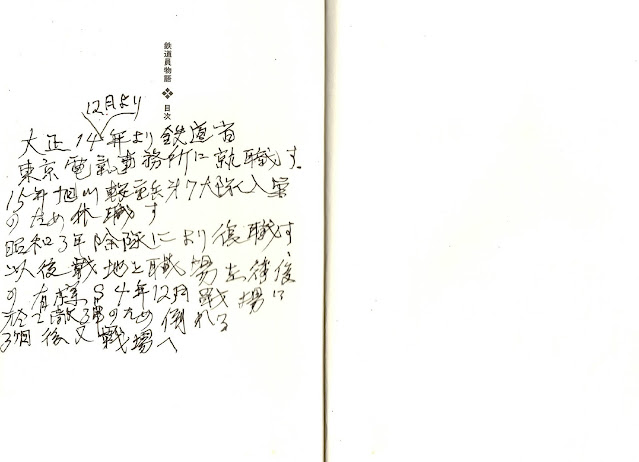 鉄道員物語 ❖ 目次
12月より
大正14年より鉄道省
東京電気事務所に就職す.
15年旭川輜重兵第7大隊入営
のため休職す
昭和3年除隊により復職す、
以後戦地と職場を往復
の有様S4年12月戦場に
於て敵弾のため倒れる
3ヶ月後又戦場へ